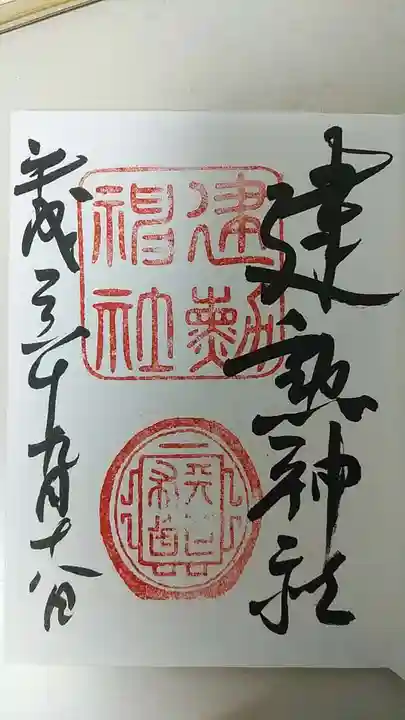 建勲神社
建勲
神社
天下
布武
平成三十九月十八日